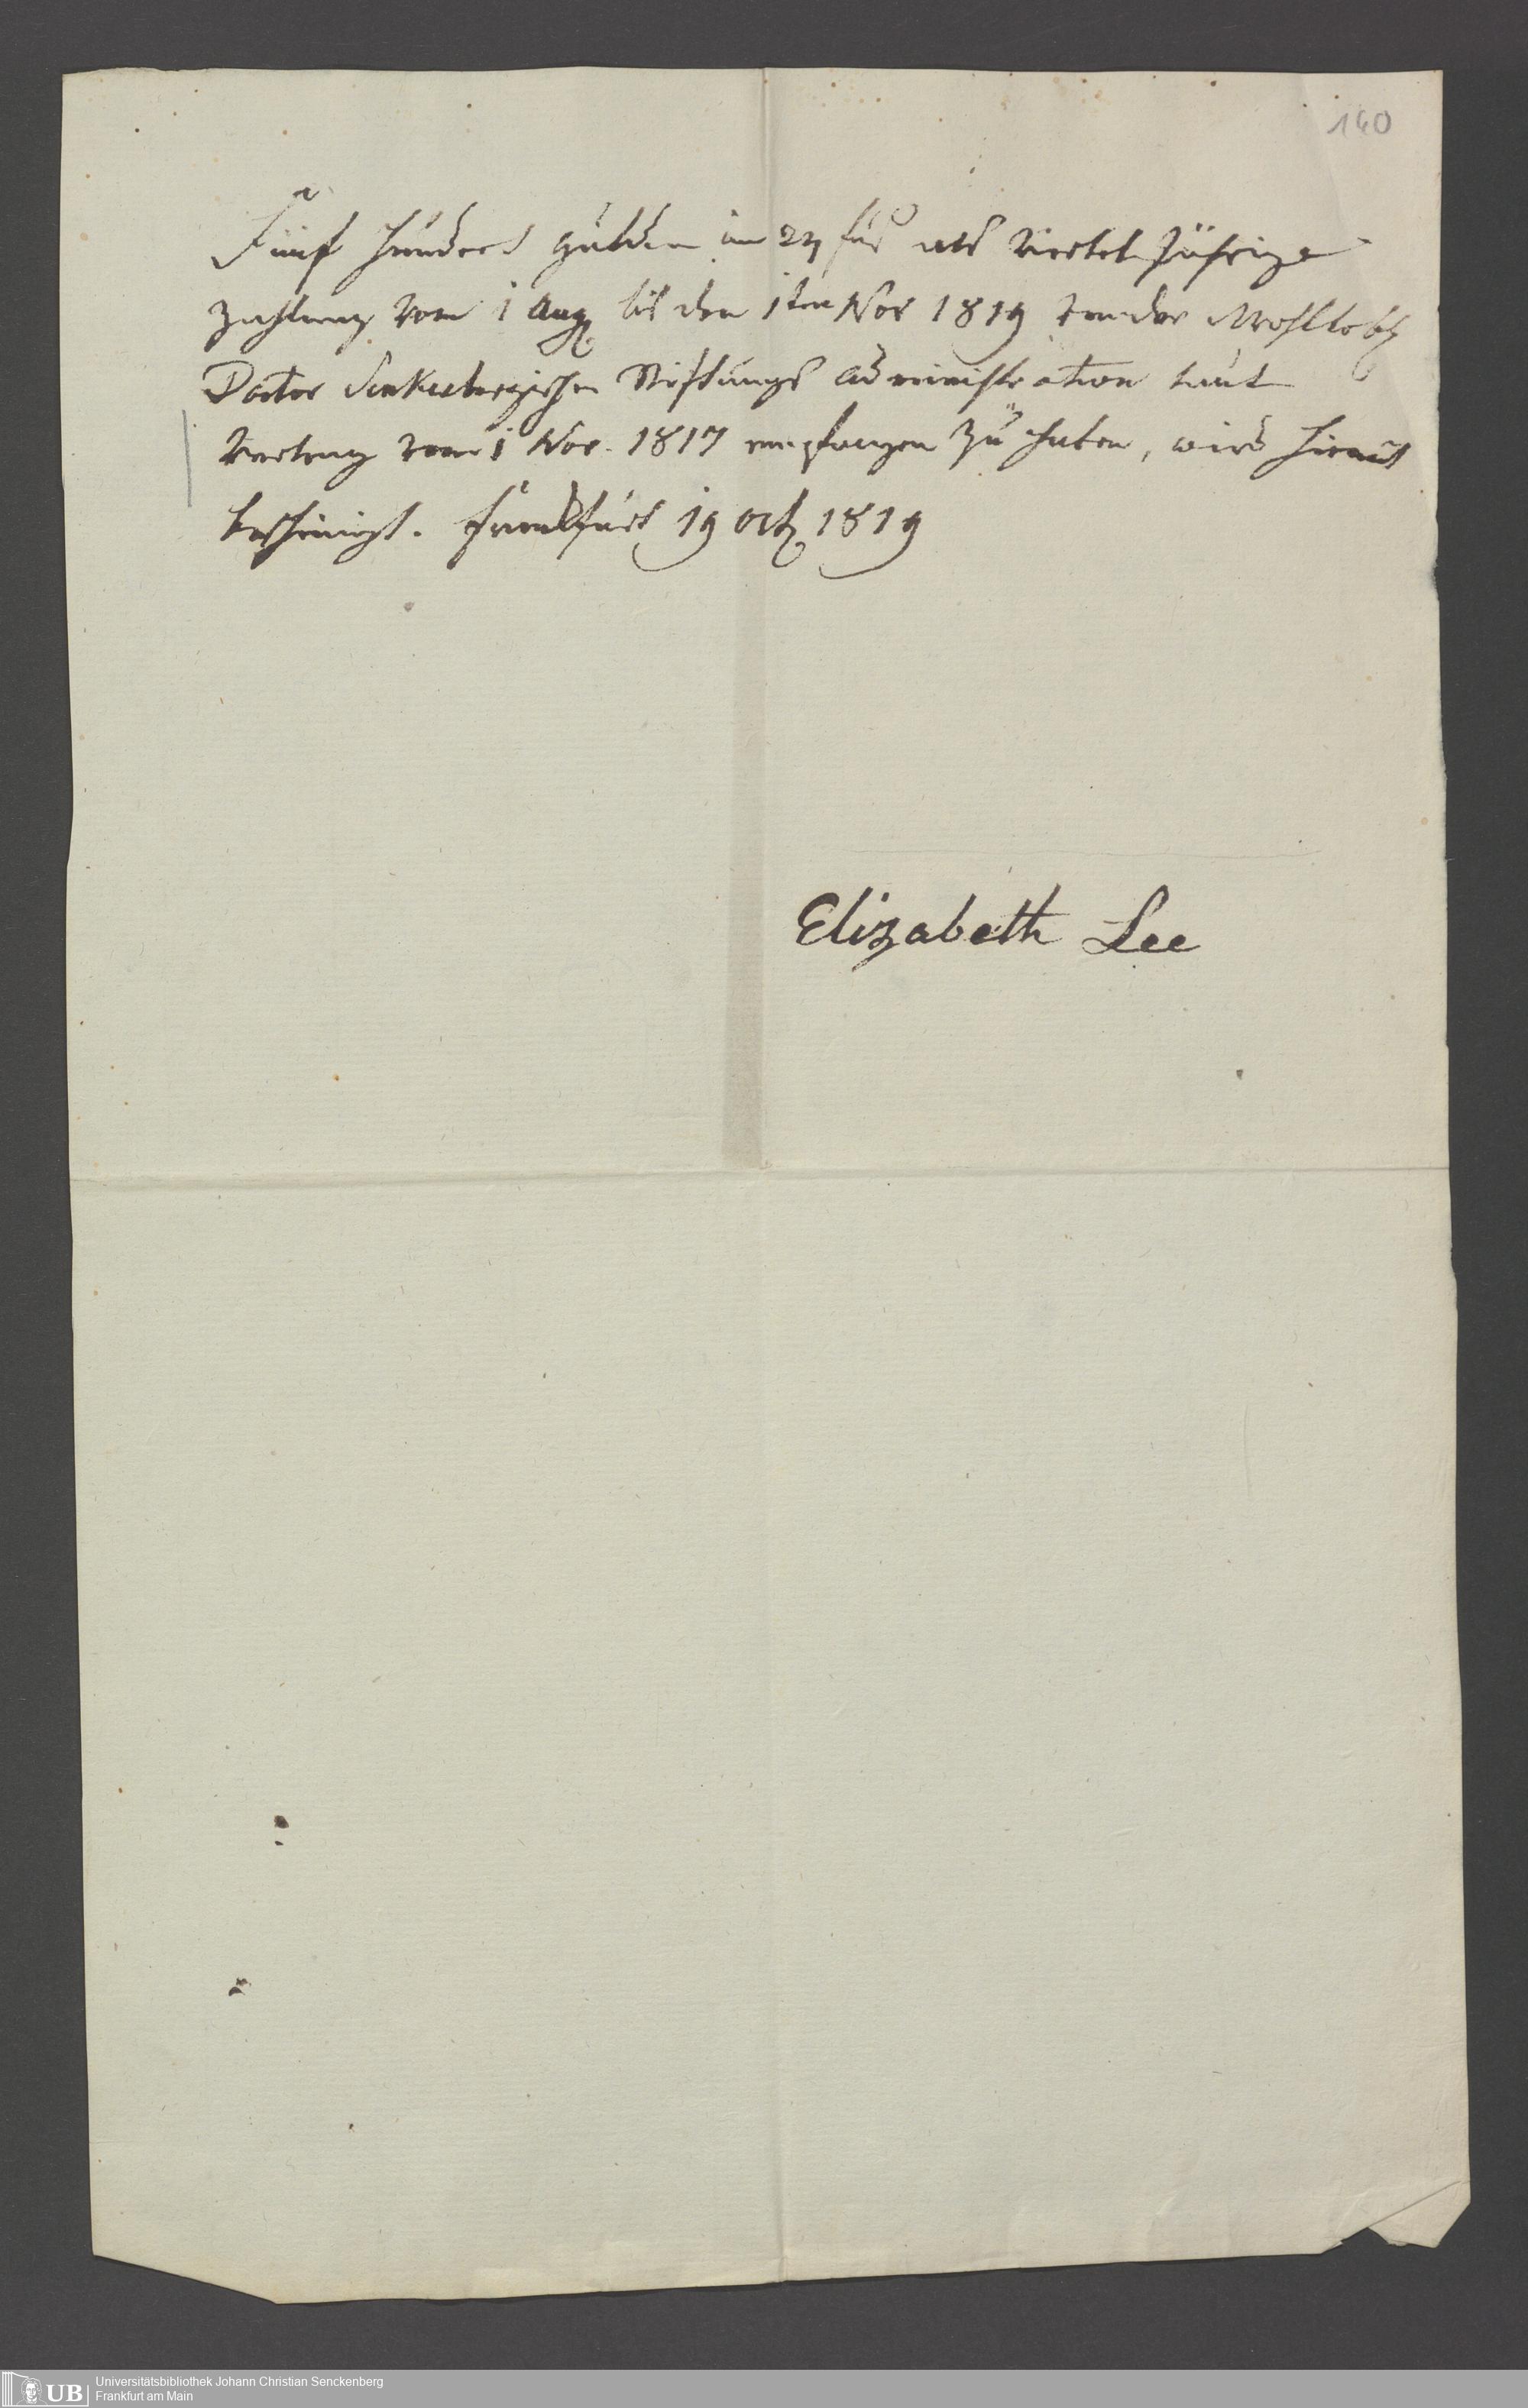 140
Fünf hundert Gulden im 24 fus als Viertel Jährige
Zahlung vom 1 Aug bis den 1ten Nov 1819 von der Wohllobl
Doctor Senkenbergischen Stiftungs Administration laut
Vertrag vom 1 Nov. 1817 empfangen zu haben, wird hiermit
bescheinigt. Frankfurt 19 Oct 1819
Elizabeth Lee
UB
Universitätsbibliothek Johann Christian Senckenberg
Frankfurt am Main